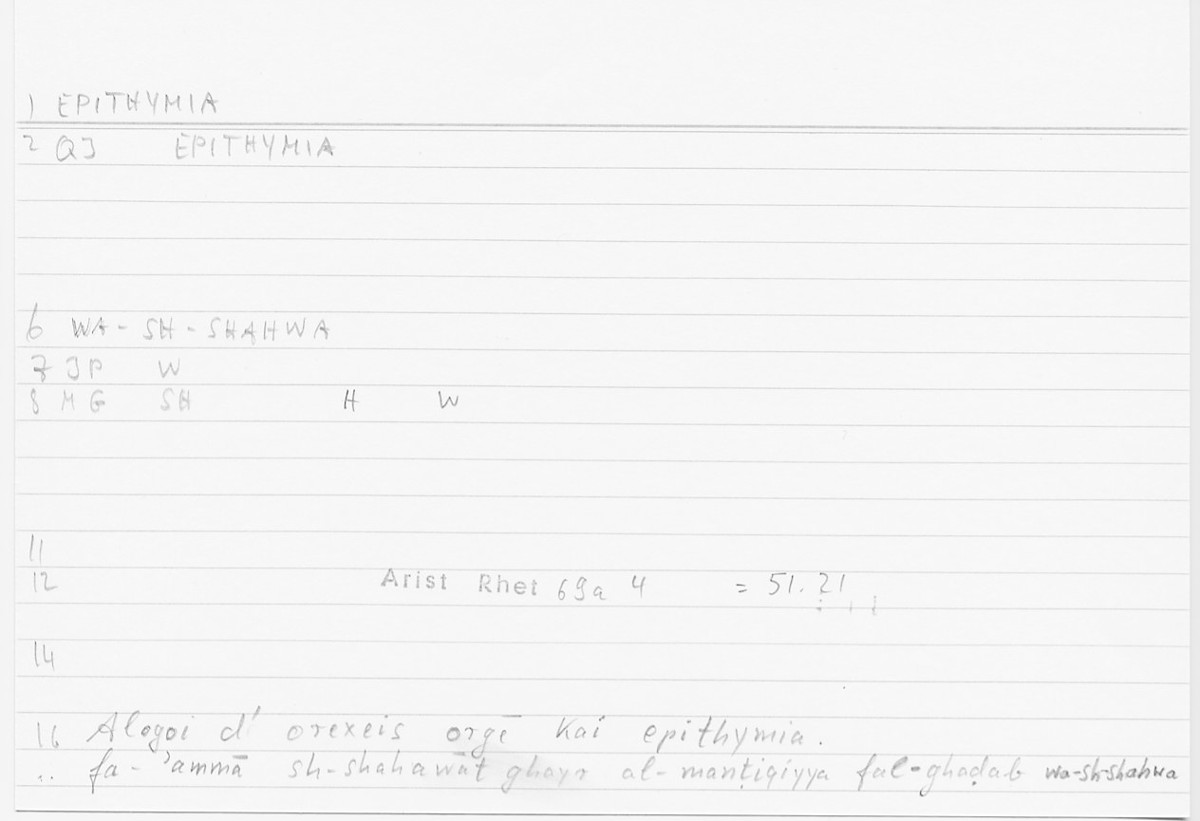 1) EPITHYMIA
2 QJ EPITHYMIA
6 WA-SH-SHAHWA
7 JP W
8 MG SH H W
11
12 Arist Rhet 69a 4 = 51.21
14
16 Alogoi d' orexeis orgē kai epithymia.
fa-'ammā sh-shahawāt ghayr al-manṭiqiyya fal-ghaḍab wa-sh-shahwa